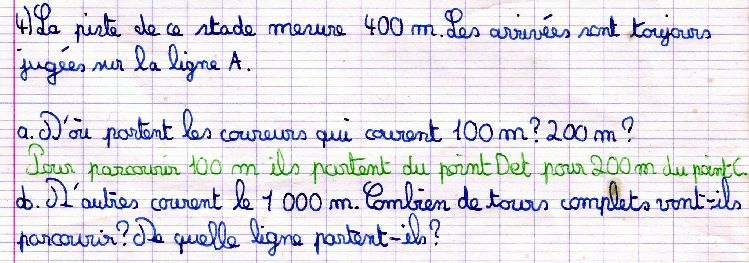 4) La piste de ce stade mesure 400 m. Les arrivées sont toujours
jugées sur la ligne A.
a. D'où partent les coureurs qui courent 100 m ? 200 m ?
Pour parcourir 100 m ils partent du point D et pour 200 m du point C.
b. D'autres courent le 1 000 m. Combien de tours complets vont-ils
parcourir ? De quelle ligne partent-ils ?